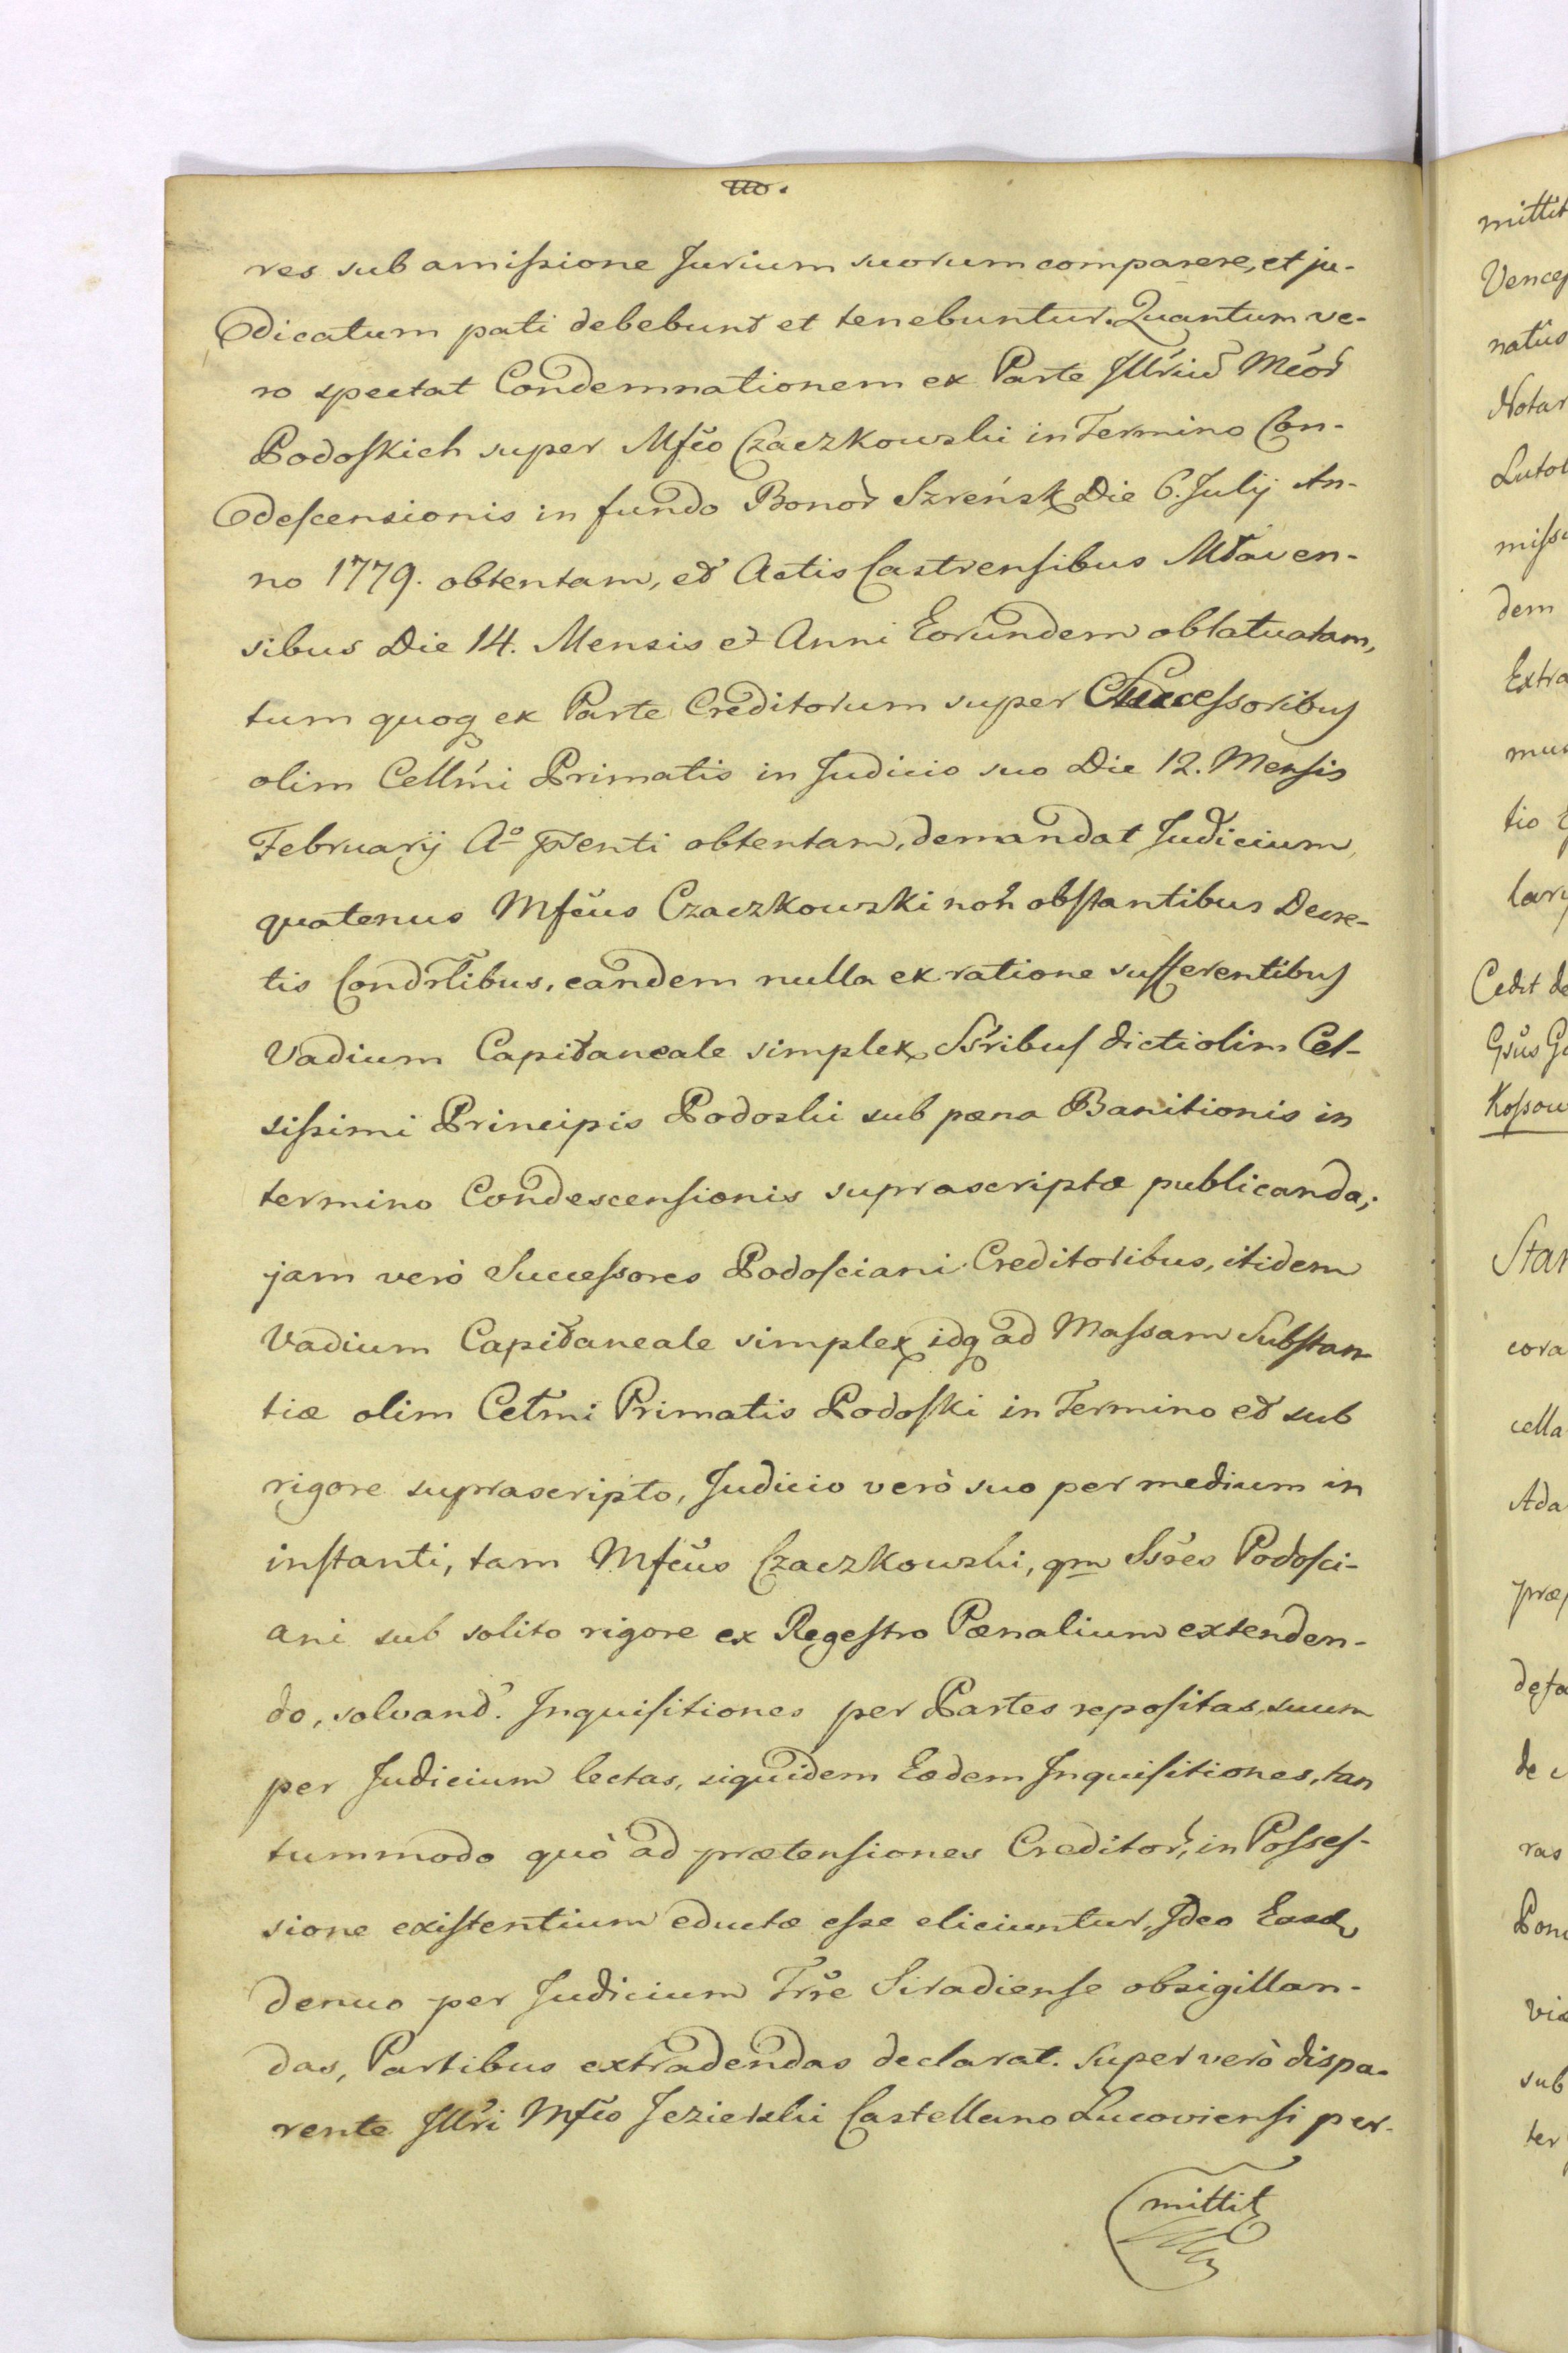 res sub amissione Jurium suorum comparere, et ju-
dicatum pati debebunt et tenebuntur. Quantum ve-
ro spectat Condemnationem ex Parte Illriu͂ Mcor͂
Podoskich super Mfco Czaczkowski in Termino Con-
descensionis in fundo Bonor͂ Szreńsk Die 6. Julij An-
no 1779. obtentam, et Actis Castrensibus Mlaven-
sibus Die 14. Mensis et Anni Eorundem oblatuatam,
tum quoq ex Parte Creditorum super Successoribus
olim Cellmi Primatis in Judicio suo Die 12. Mensis
Februarij Aº pnti obtentam, demandat Judicium,
quatenus Mfcus Czaczkowski non obstantibus Decre-
tis Condrlibus, eandem nulla ex ratione sufferentibus
Vadium Capitaneale simplex Ssribus dicti olim Cel-
sissimi Principis Podoski sub pæna Banitionis in
termino Condescensionis suprascriptæ publicanda;
jam verò Successores Podosciani Creditoribus, itidem
Vadium Capitaneale simplex idq ad Massam Substan-
tiæ olim Celmi Primatis Podoski in Termino et sub
rigore suprascripto, Judicio verò suo per medium in
instanti, tam Mfcus Czaczkowski, qm Ssres Podosci-
ani sub solito rigore ex Regestro Pænalium extenden-
do, solvand. Inquisitiones per Partes repositas, suum
per Judicium lectas, siquidem Eædem Inquisitiones, tan
tummodo quò ad prætensiones Creditor͂, in Posses-
sione existentium eductæ esse eliciuntur, Ideo Easd
denuo per Judicium Trre Siradiense obsigillan-
das, Partibus extradendas declarat. Super verò dispa-
rente Illri Mfco Jezierski Castellano Lucoviensi per-
mittit
mittit
natus
dem
tio
Cedit de
Gsus
cora
cella
Ada
de
ras
sub
ter